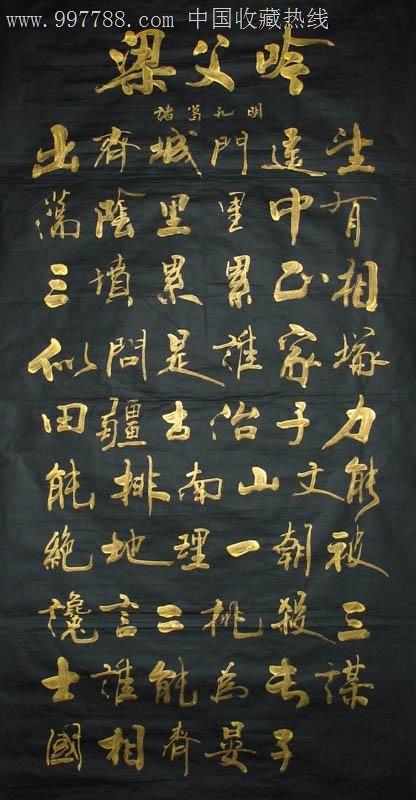 www.997788.com 中国收藏热线
梁父吟
諸葛孔明
出齊城門遥望
蕩陰里里中有
三墳累累正相
似問是誰家塚
田疆古冶子力
能排南山文能
絶地理一朝被
讒言二桃殺三
士誰能為此謀
國相齊晏子